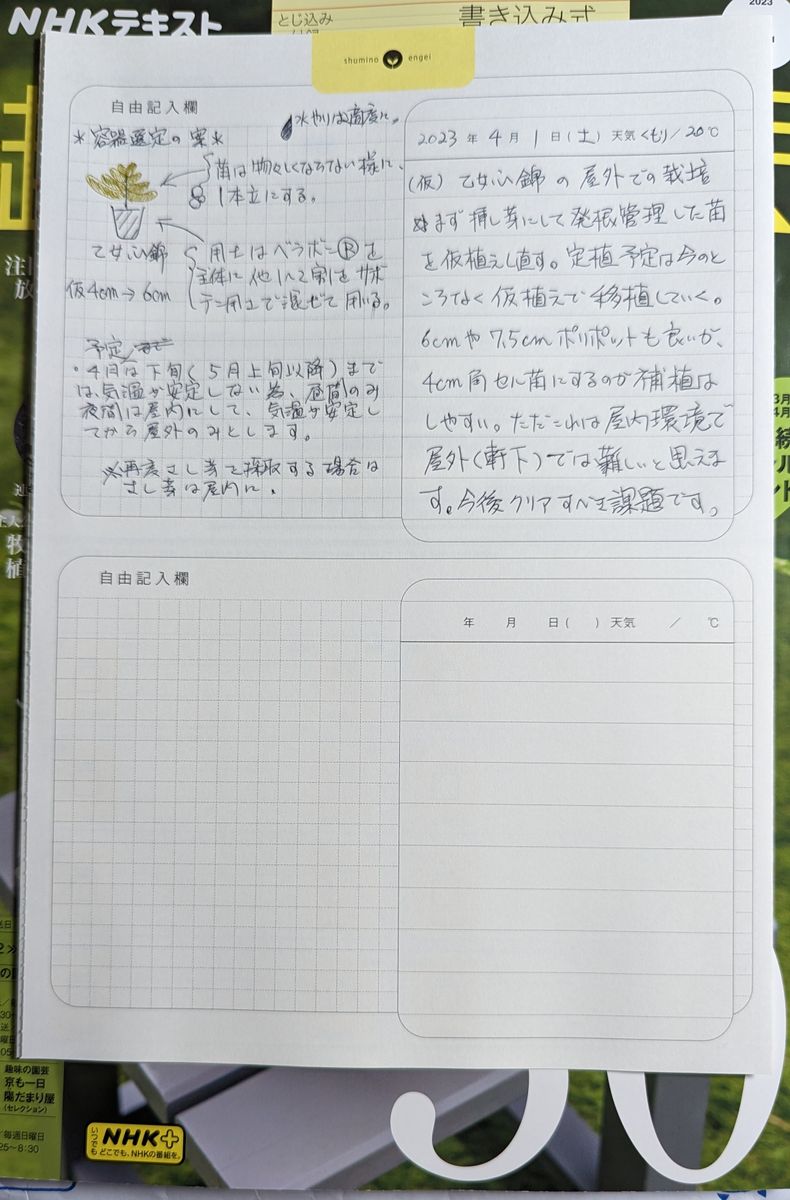 NHKテキスト
2023
とじ込み
書き込み式
shumino engei
自由記入欄
水やりは適度に。
*容器選定の案*
苗は物々しくならない様に、
1本立にする。
乙女心錦
仮4cm→6cm
用土はベラボンⓇを
主体に他1〜2割をサボ
テン用土で混ぜて用いる。
予定
・4月は下旬(5月上旬以降)まで
は、気温が安定しない為、昼間のみ
夜間は屋内にして、気温が安定し
てから屋外のみとします。
※再度さし芽で採取する場合は
さし芽は屋内に。
2023年 4月 1日(土) 天気 くもり/20℃
(仮) 乙女心錦の屋外での栽培
まず挿し芽にして発根管理した苗
を仮植えし直す。定植予定は今のと
ころなく仮植えで移植していく。
6cmや7.5cmポリポットも良いが、
4cm角セル苗にするのが補植は
しやすい。ただこれは屋内環境で
屋外(軒下)では難しいと思えま
す。今後クリアすべき課題です。
自由記入欄
年 月 日( ) 天気 / ℃
趣味の園芸
京も一日
陽だまり屋
(セレクション)
/毎週日曜日
25~8:30
いつでも どこでも、NHKの番組を。
NHK+